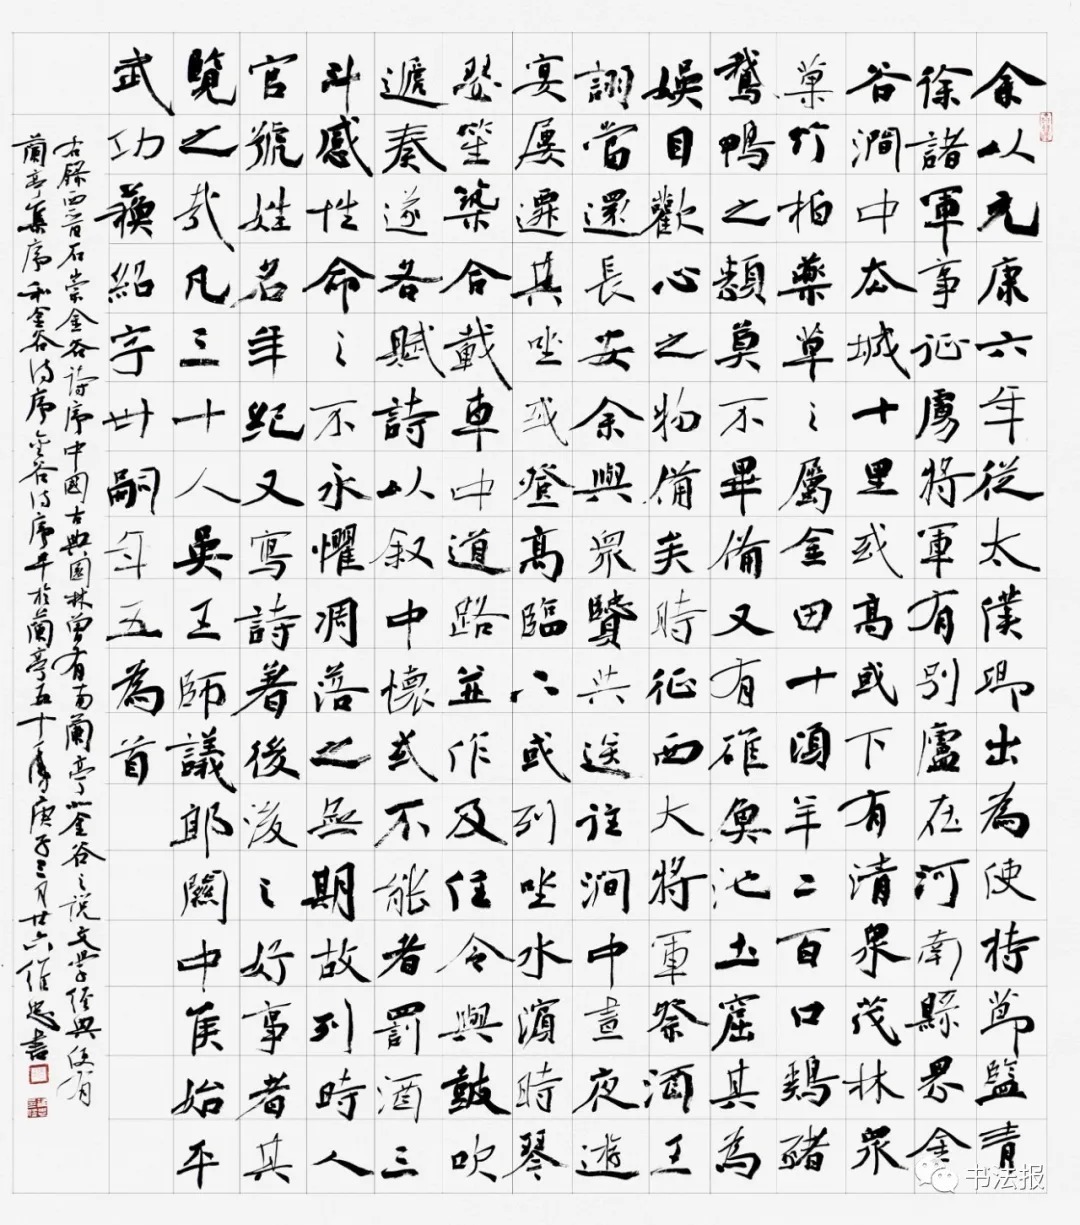 余以元康六年從太僕卿出為使持節監青
徐諸軍事征虜將軍有別廬在河南縣界金
谷澗中去城十里或高或下有清泉茂林眾
菓竹柏藥草之屬金田十頃羊二百口鷄豬
鵝鴨之類莫不畢備又有碓魚池土窟其為
娛目歡心之物備矣時征西大將軍祭酒王
詡當還長安余與眾賢共送往澗中晝夜遊
宴屢遷其坐或登高臨下或列坐水濱時琴
瑟笙築合載車中道路並作及住令與鼓吹
遞奏遂各賦詩以叙中懷或不能者罰酒三
斗感性命之不永懼凋落之無期故列時人
官號姓名年紀又寫詩著後後之好事者其
覽之哉凡三十人吳王師議郎關中侯始平
武功蘇紹字世嗣年五為首
右錄西晉石崇金谷詩序中國古典園林曾有南蘭亭北金谷之說文學經典便有
蘭亭集序和金谷詩序金谷詩序早於蘭亭五十年庚子三月廿六維忠書
书法报